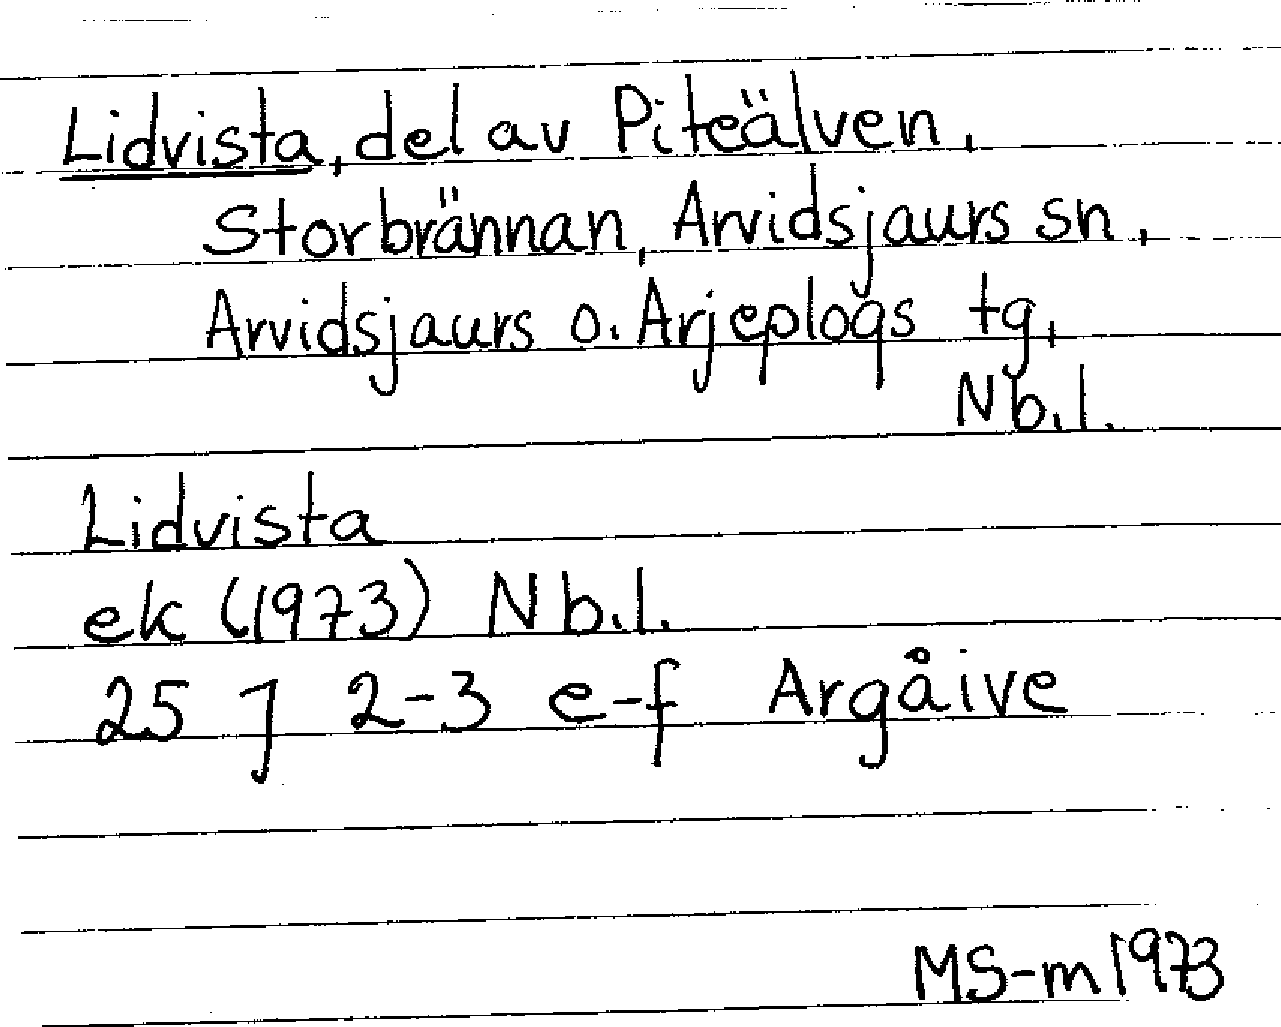 Lidvista, del av Piteälven,
Storbrännan, Arvidsjaurs sn,
Arvidsjaurs o. Arjeplogs tg,
Nb.l.
Lidvista
ek (1973) Nb.l.
25 J 2-3 e-f Argåive
MS-m 1973